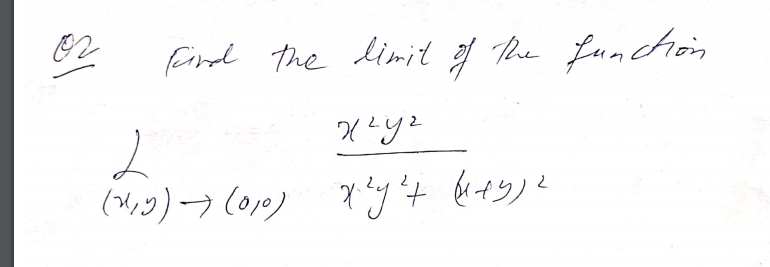 Q2 Find the limit of the function
L (x,y) → (0,0) x²y² / x²y² + (x+y)²